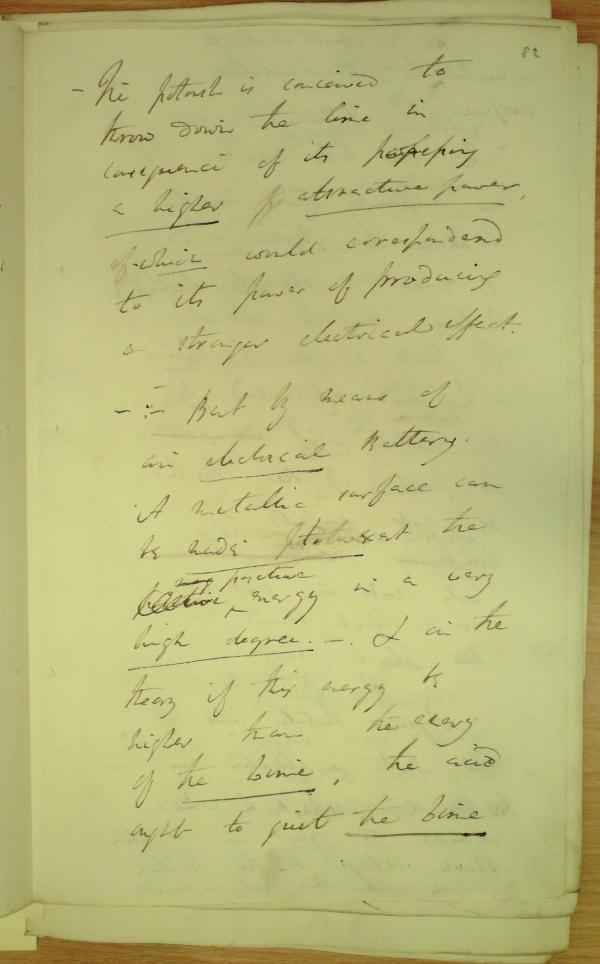 82
- The potash is conceived to
throw down the lime in
consequence of its possessing
a higher attractive power,
of which would correspondend
to its power of producing
a stronger electrical effect.
- :- But by means of
an electrical Battery.
A metallic surface can
be made to exert the
positive
energy in a very
high degree. -. & in the
theory if this energy be
higher than the energy
of the lime, the acid
ought to quit the lime